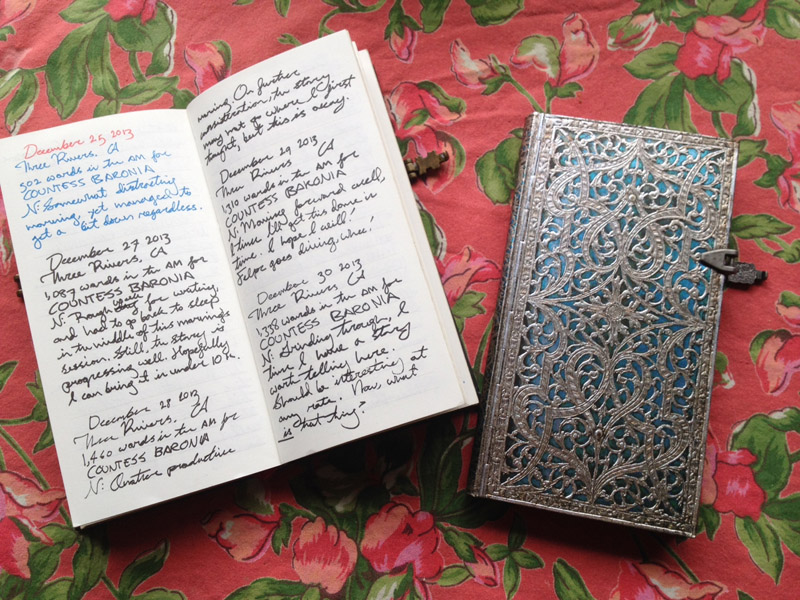 December 25, 2013
Three Rivers, CA
502 words in the AM for
COUNTESS BARONIA
N: Somewhat distracting
morning, yet managed to
get a bit down regardless.
December 27, 2013
Three Rivers, CA
1,087 words in the AM for
COUNTESS BARONIA
N: Rough week for writing,
and had to go back to sleep
in the middle of this mornings
session. Still, the story is
progressing well. Hopefully
I can bring it in under 10k.
December 28 2013
Three Rivers, CA
1,460 words in the AM for
COUNTESS BARONIA
N: Another productive
morning. On further
consideration, the story
may not go where I first
thought, but this is okay.
December 29 2013
Three Rivers CA
1,310 words in the AM for
COUNTESS BARONIA
N: Moving forward well,
I think I'll get this done in
time. I hope I will!
goes diving, whee!
December 30 2013
Three Rivers, CA
1,338 words in the AM for
COUNTESS BARONIA
N: Grinding through, I
think I have a story
worth telling here.
Should be interesting at
any rate. Now, what
is that thing?